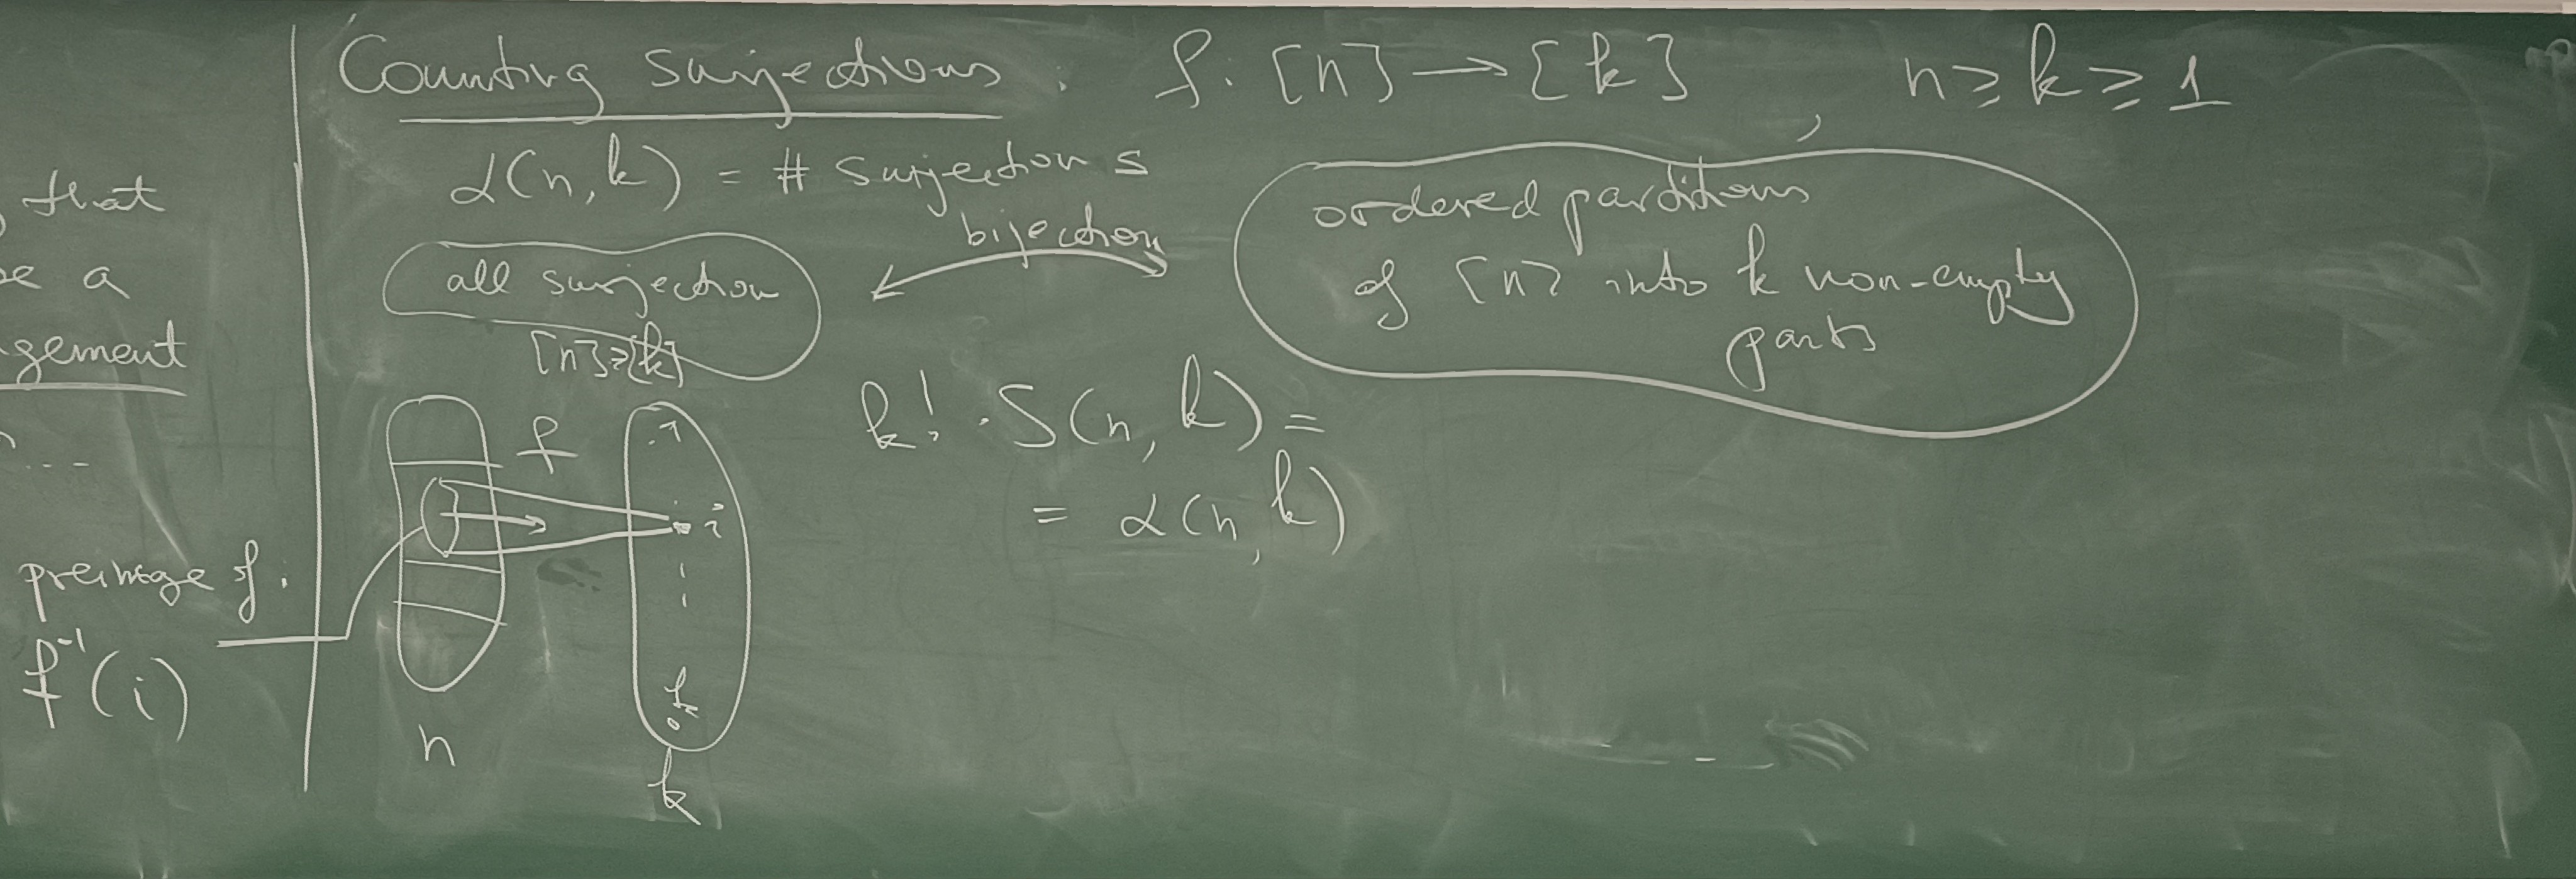 that
a
gement
...
preimage of i
f⁻¹(i)
Counting surjections : f: [n] → [k] , n ≥ k ≥ 1
α(n, k) = # surjections
all surjection
[n]→[k]
bijection
ordered partitions
of [n] into k non-empty
parts
k! · S(n, k) =
= α(n, k)
f
1
i
k
n
k